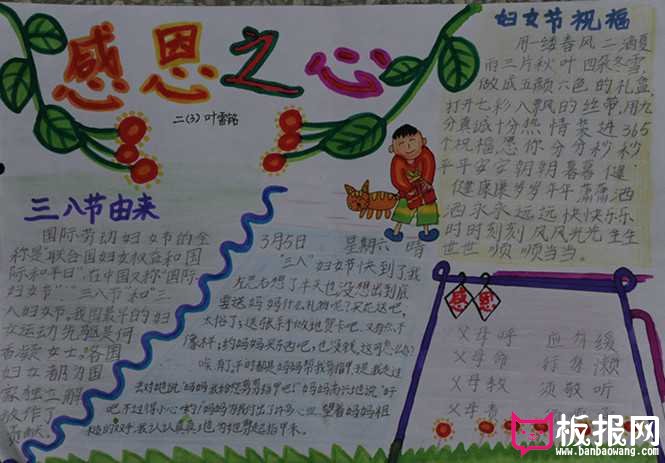 感恩之心
二(3) 叶雪铭
妇女节祝福
用一缕春风二洒夏
雨三片秋叶四朵冬雪,
做成五颜六色的礼盒,
打开七彩八飘的丝带,用九
分真诚十分热情装进365
个祝福愿你分分秒秒
平平安安朝朝喜喜健
健康康岁岁年年潇潇洒
洒永永远远快快乐乐
时时刻刻风风光光生生
世世顺顺当当。
三八节由来
国际劳动妇女节的全
称是"联合国妇女权益和国
际和平日",在中国又称"国际
妇女节"、"三八节"和"三
八妇女节"。我国最早的妇
女运动先驱是何
香凝女士。各国
妇女都为国
家独立解
放作了
贡献。
3月5日 星期六 晴
"三八"妇女节快到了我
左思右想了半天也没想出到底
要送妈妈什么礼物呢?买花送吧,
太俗了;送张手做地贺卡吧,又有点不
像样;约妈妈买东西吧,也没钱。这可怎么办?
唉,有了,平时都是妈妈帮我剪指甲,
去对她说:"妈妈我给您剪剪指甲吧!"妈妈高兴地说:"好
吧不过得小心哟!"妈妈为我付出了许多心血,望着妈妈粗
糙的双手,我认认真真地为她剪起指甲来。
感恩
父母呼 应勿缓
父母命 行勿懒
父母教 须敬听
父母责
板报网
www.banbaowang.com